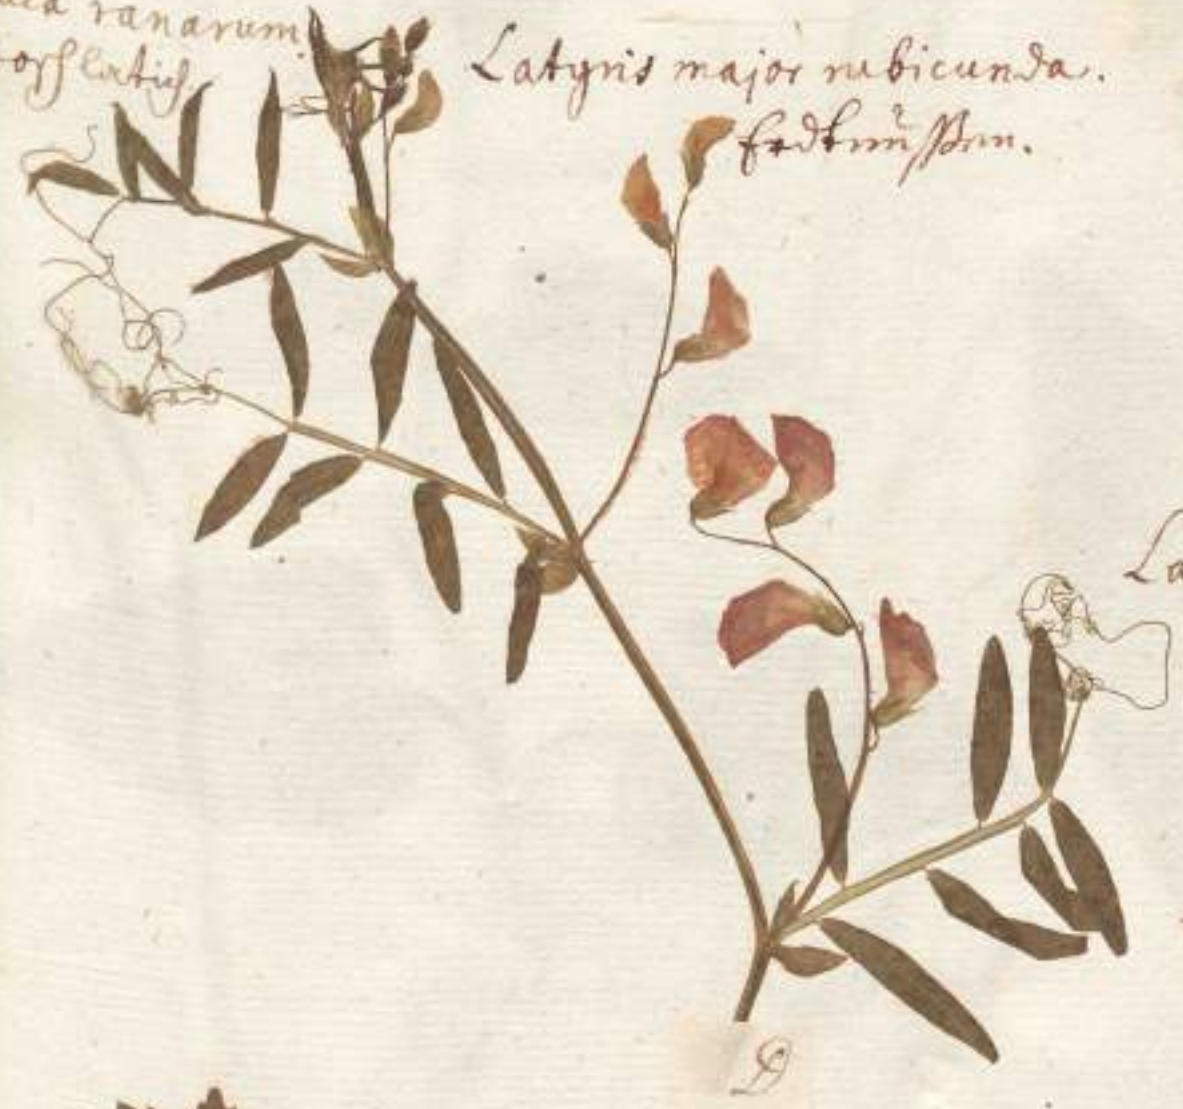 ranarum
Latyris major rubicunda.
Erdknüssen.
La
D